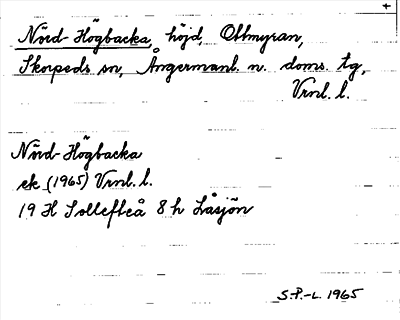 Nörd-Högbacka, höjd, Ottmyran,
Skorpeds sn, Ångermanl. n. doms. tg,
Vrnl. l.
Nörd-Högbacka
ek (1965) Vrnl. l.
19 H Sollefteå 8 h Låsjön
S.P.-L. 1965